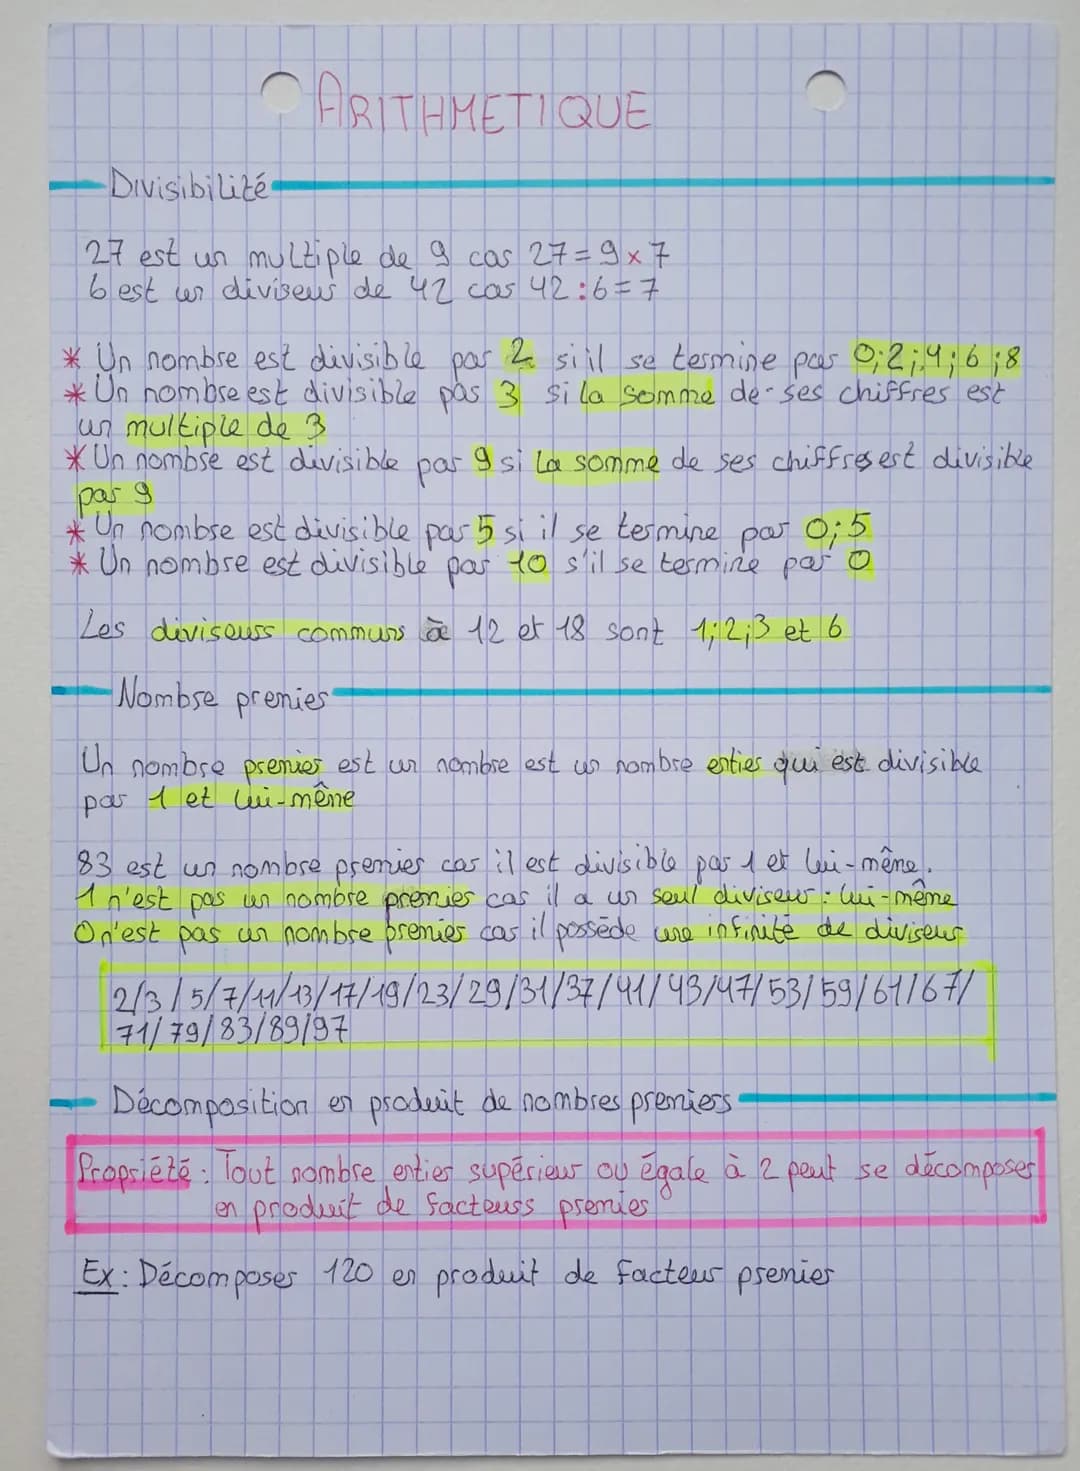 ARITHMETIQUE
Divisibilité
27 est un multiple de 9 car 27=9×7
6 est un diviseur de 42 car 42:6=7
* Un nombre est divisible par 2 si il se termine par 0;2;4;6;8
* Un nombre est divisible par 3 si la somme de ses chiffres est
un multiple de 3
* Un nombre est divisible par 9 si la somme de ses chiffres est divisible
par 9
* Un nombre est divisible par 5 si il se termine par 0;5
* Un nombre est divisible par 10 s'il se termine par 0
Les diviseurs communs à 12 et 18 sont 1;2;3 et 6
Nombre premier
Un nombre premier est un nombre est un nombre entier qui est divisible
par 1 et lui-même
83 est un nombre premier car il est divisible par 1 et lui-même.
1 n'est pas un nombre premier car il a un seul diviseur : lui-même
0 n'est pas un nombre premier car il possède une infinité de diviseur
2/3/5/7/11/13/17/19/23/29/31/37/41/43/47/53/59/61/67/
71/79/83/89/97
Décomposition en produit de nombres premiers
Propriété : Tout nombre entier supérieur ou égale à 2 peut se décomposer
en produit de facteurs premier
Ex : Décomposer 120 en produit de facteur premier